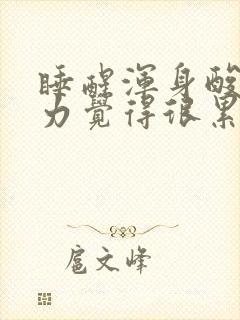 睡醒渾身酸
力覺得很累
扈文峰